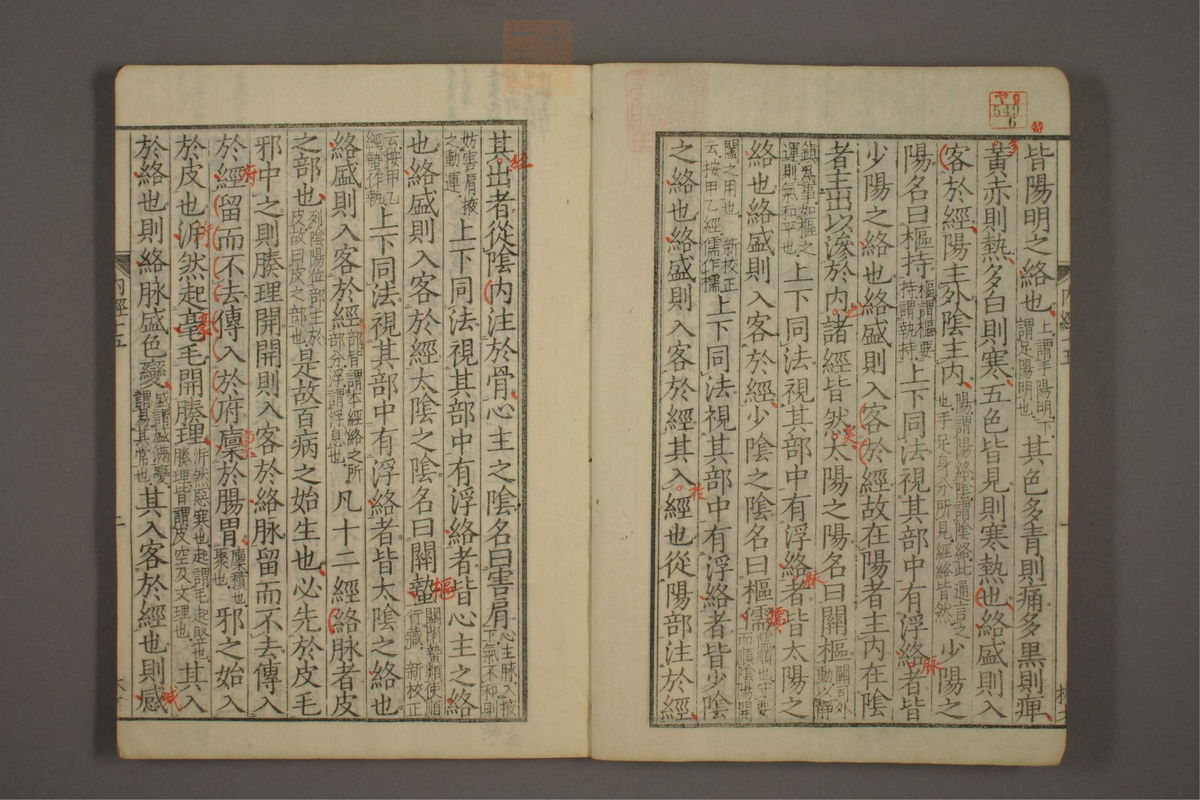 皆陽明之絡也上謂手陽明下謂足陽明也其色多青則痛多黒則痺
黄赤則熱多白則寒五色皆見則寒熱也絡盛則入
客於經陽主外陰主内陽謂陽絡陰謂陰絡此通言之也手足身分所見經絡皆然少陽之
陽名曰樞持樞謂樞要持謂執持上下同法視其部中有浮絡者皆
少陽之絡也絡盛則入客於經故在陽者主内在陰
者主出以滲於内諸經皆然太陽之陽名曰關樞關司外動以靜
鎮為事如樞之運則氣和平也上下同法視其部中有浮絡者皆太陽之
絡也絡盛則入客於經少陰之陰名曰樞儒儒順也守要而順陰陽開
闔之用也新校正云按甲乙經儒作檽上下同法視其部中有浮絡者皆少陰
之絡也絡盛則入客於經其入經也從陽部注於經
其出者從陰内注於骨心主之陰名曰害肩心主脉入掖下氣不和則
妨害肩掖之動運上下同法視其部中有浮絡者皆心主之絡
也絡盛則入客於經太陰之陰名曰關蟄關閉蟄類使順行藏新校正
云按甲乙經蟄作執上下同法視其部中有浮絡者皆太陰之絡也
絡盛則入客於經部皆謂本經絡之所部分浮謂浮息也凡十二經絡脉者皮
之部也列陰陽位部主於皮故曰皮之部也是故百病之始生也必先於皮毛
邪中之則腠理開開則入客於絡脉留而不去傳入
於經留而不去傳入於府廩於腸胃廩積也聚也邪之始入
於皮也泝然起毫毛開腠理泝然惡寒也起謂毛起竪也腠理皆謂皮空及文理也其入
於絡也則絡脉盛色變盛謂盛滿變謂易其常也其入客於經也則感
内經十五
549
6